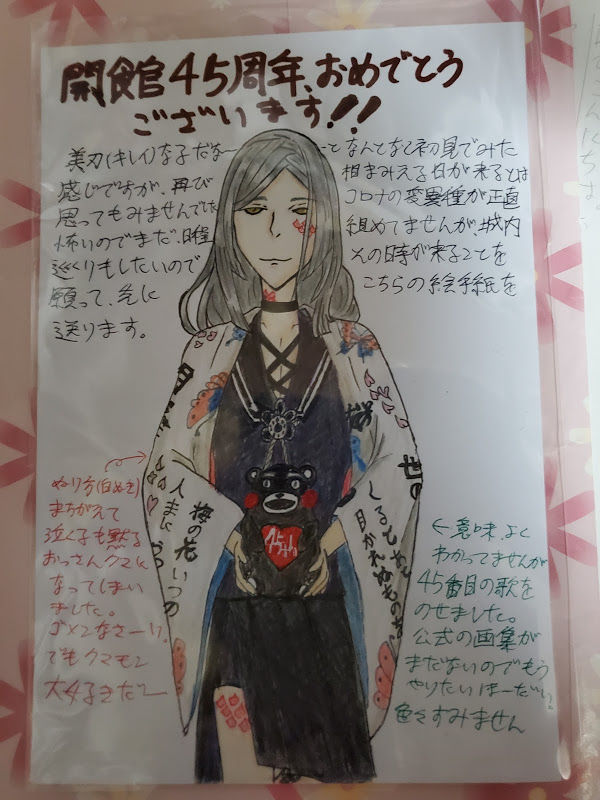 開館45周年、おめでとう
ございます!!
美刃(キレイ)な子だな〜っとなんとなと初見でみた
感じですが、再び相まみえる日が来るとは
思ってもみませんでしたコロナの変異種が正直
怖いのでまだ、日程組めてませんが城内
巡くりもしたいのでその時が来ることを
願って、先にこちらの絵手紙を
送ります。
桜
世の
くるとあくと
目かれぬものを
梅の花いつの
人まにうつ
45th
ぬり方(白ぬき)
まちがえて
泣く子も黙る
おっさんクマに
なってしまい
ました。
ゴメンなさーい。
でもクマモン
大好きだー
←意味、よく
わかってませんが
45番目の歌を
のせました。
公式の画集が
まだないのでもう
やりたいほーだい。
色々すみません